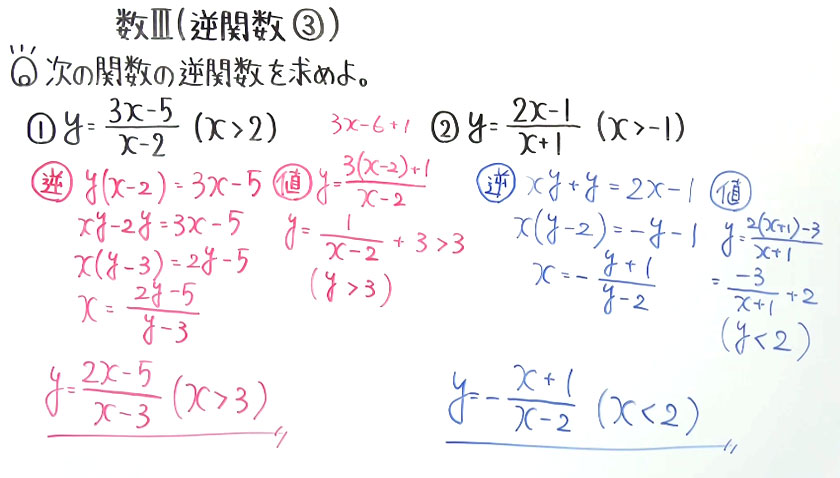 数Ⅲ(逆関数③)
次の関数の逆関数を求めよ。
① y = (3x-5)/(x-2) (x>2)
逆 y(x-2) = 3x-5
xy-2y = 3x-5
x(y-3) = 2y-5
x = (2y-5)/(y-3)
3x-6+1
値 y = (3(x-2)+1)/(x-2)
y = 1/(x-2) + 3 > 3
(y>3)
y = (2x-5)/(x-3) (x>3)
② y = (2x-1)/(x+1) (x>-1)
逆 xy+y = 2x-1
x(y-2) = -y-1
x = -(y+1)/(y-2)
値
y = (2(x+1)-3)/(x+1)
= -3/(x+1) + 2
(y<2)
y = -(x+1)/(x-2) (x<2)